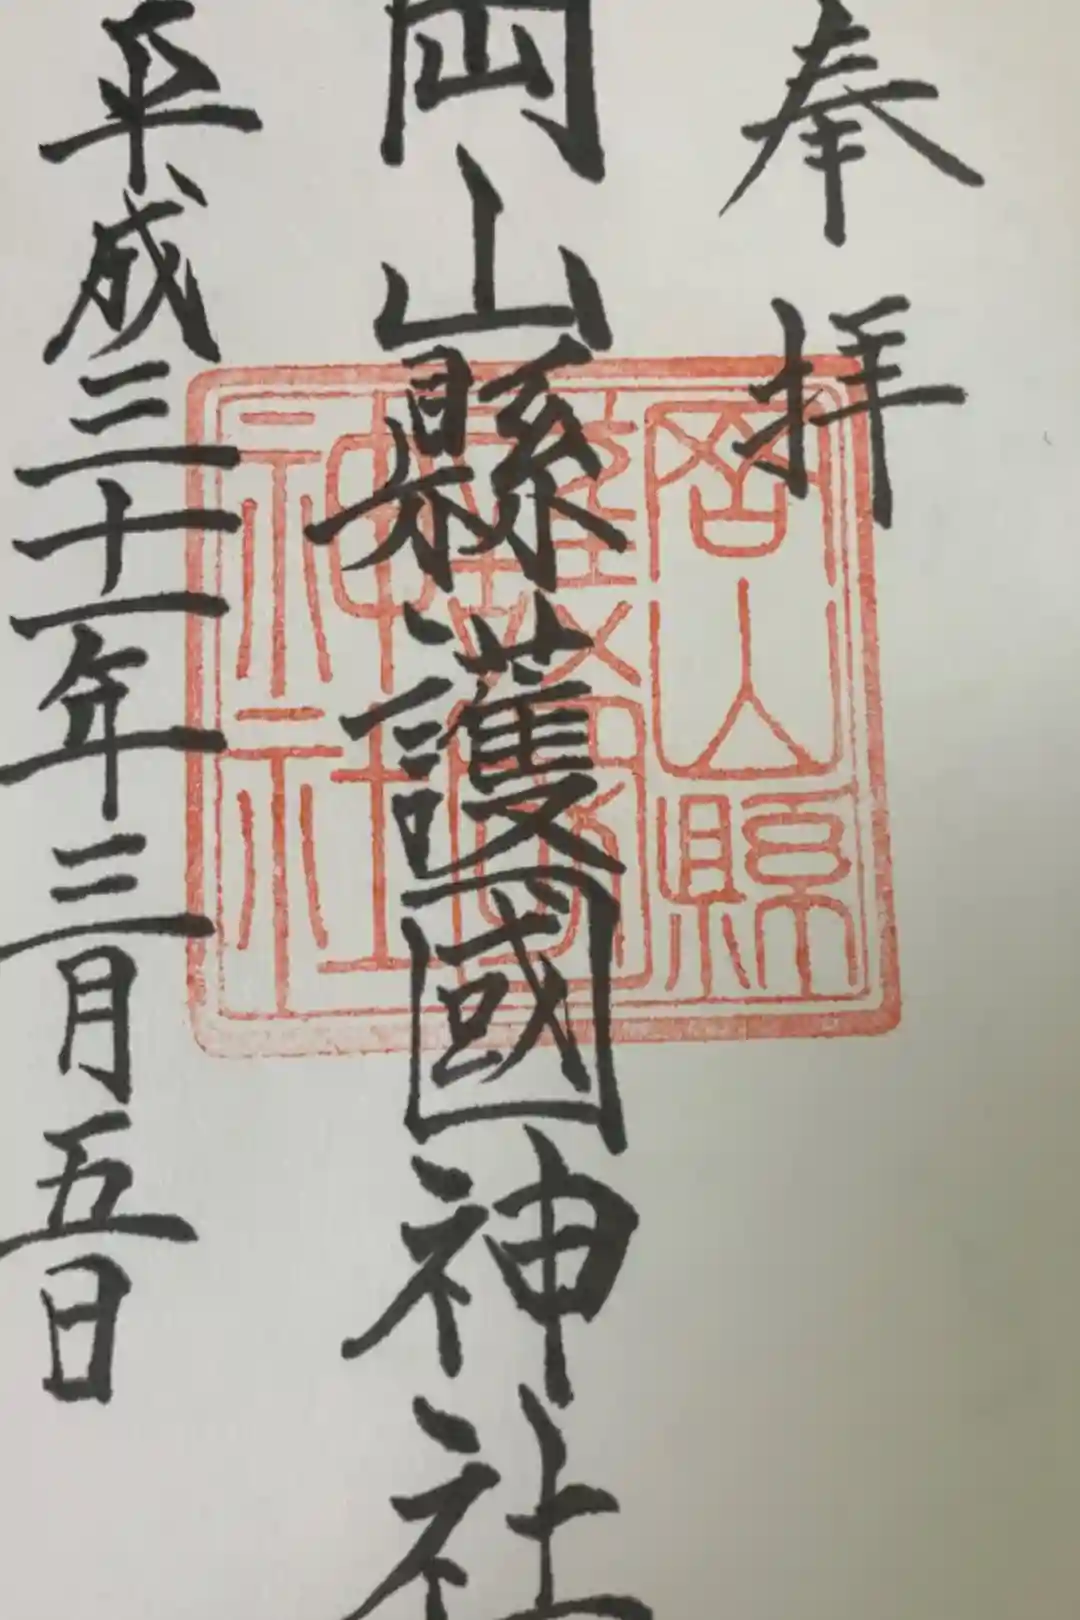 奉拝
岡山縣護國神社
平成三十一年三月五日
岡山縣
護國
神社